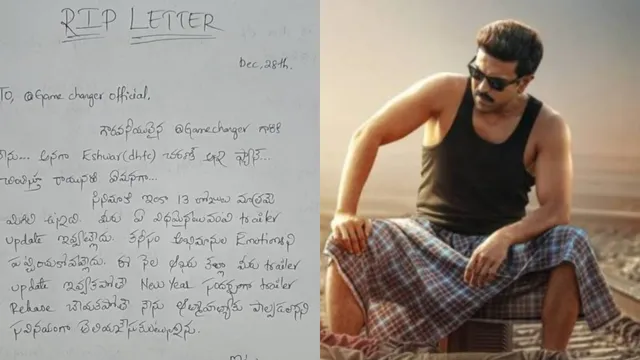 RIP LETTER
Dec. 28th.
TO, @Game changer official.
గౌరవనీయులైన @Gamechanger గారికి
నేను... అనగా Eshwar(dhfc) చరణ్ అన్న ఫ్యాన్...
రాయునది ఏమనగా...
సినిమాకి ఇంకా 13 రోజులు మాత్రమే
మిగిలి ఉన్నది. మీరు ఏ విధమైనటువంటి trailer
update ఇవ్వట్లేదు. కనీసం అభిమానుల Emotionsని
పట్టించుకోవట్లేదు. ఈ నెల ఆఖరు కల్లా మీరు trailer
update ఇవ్వకపోతే New Year సందర్భంగా trailer
Release చేయకపోతే నేను ఆత్మహత్యకు పాల్పడతానని
సవినయంగా తెలియజేసుకుంటున్నాను.